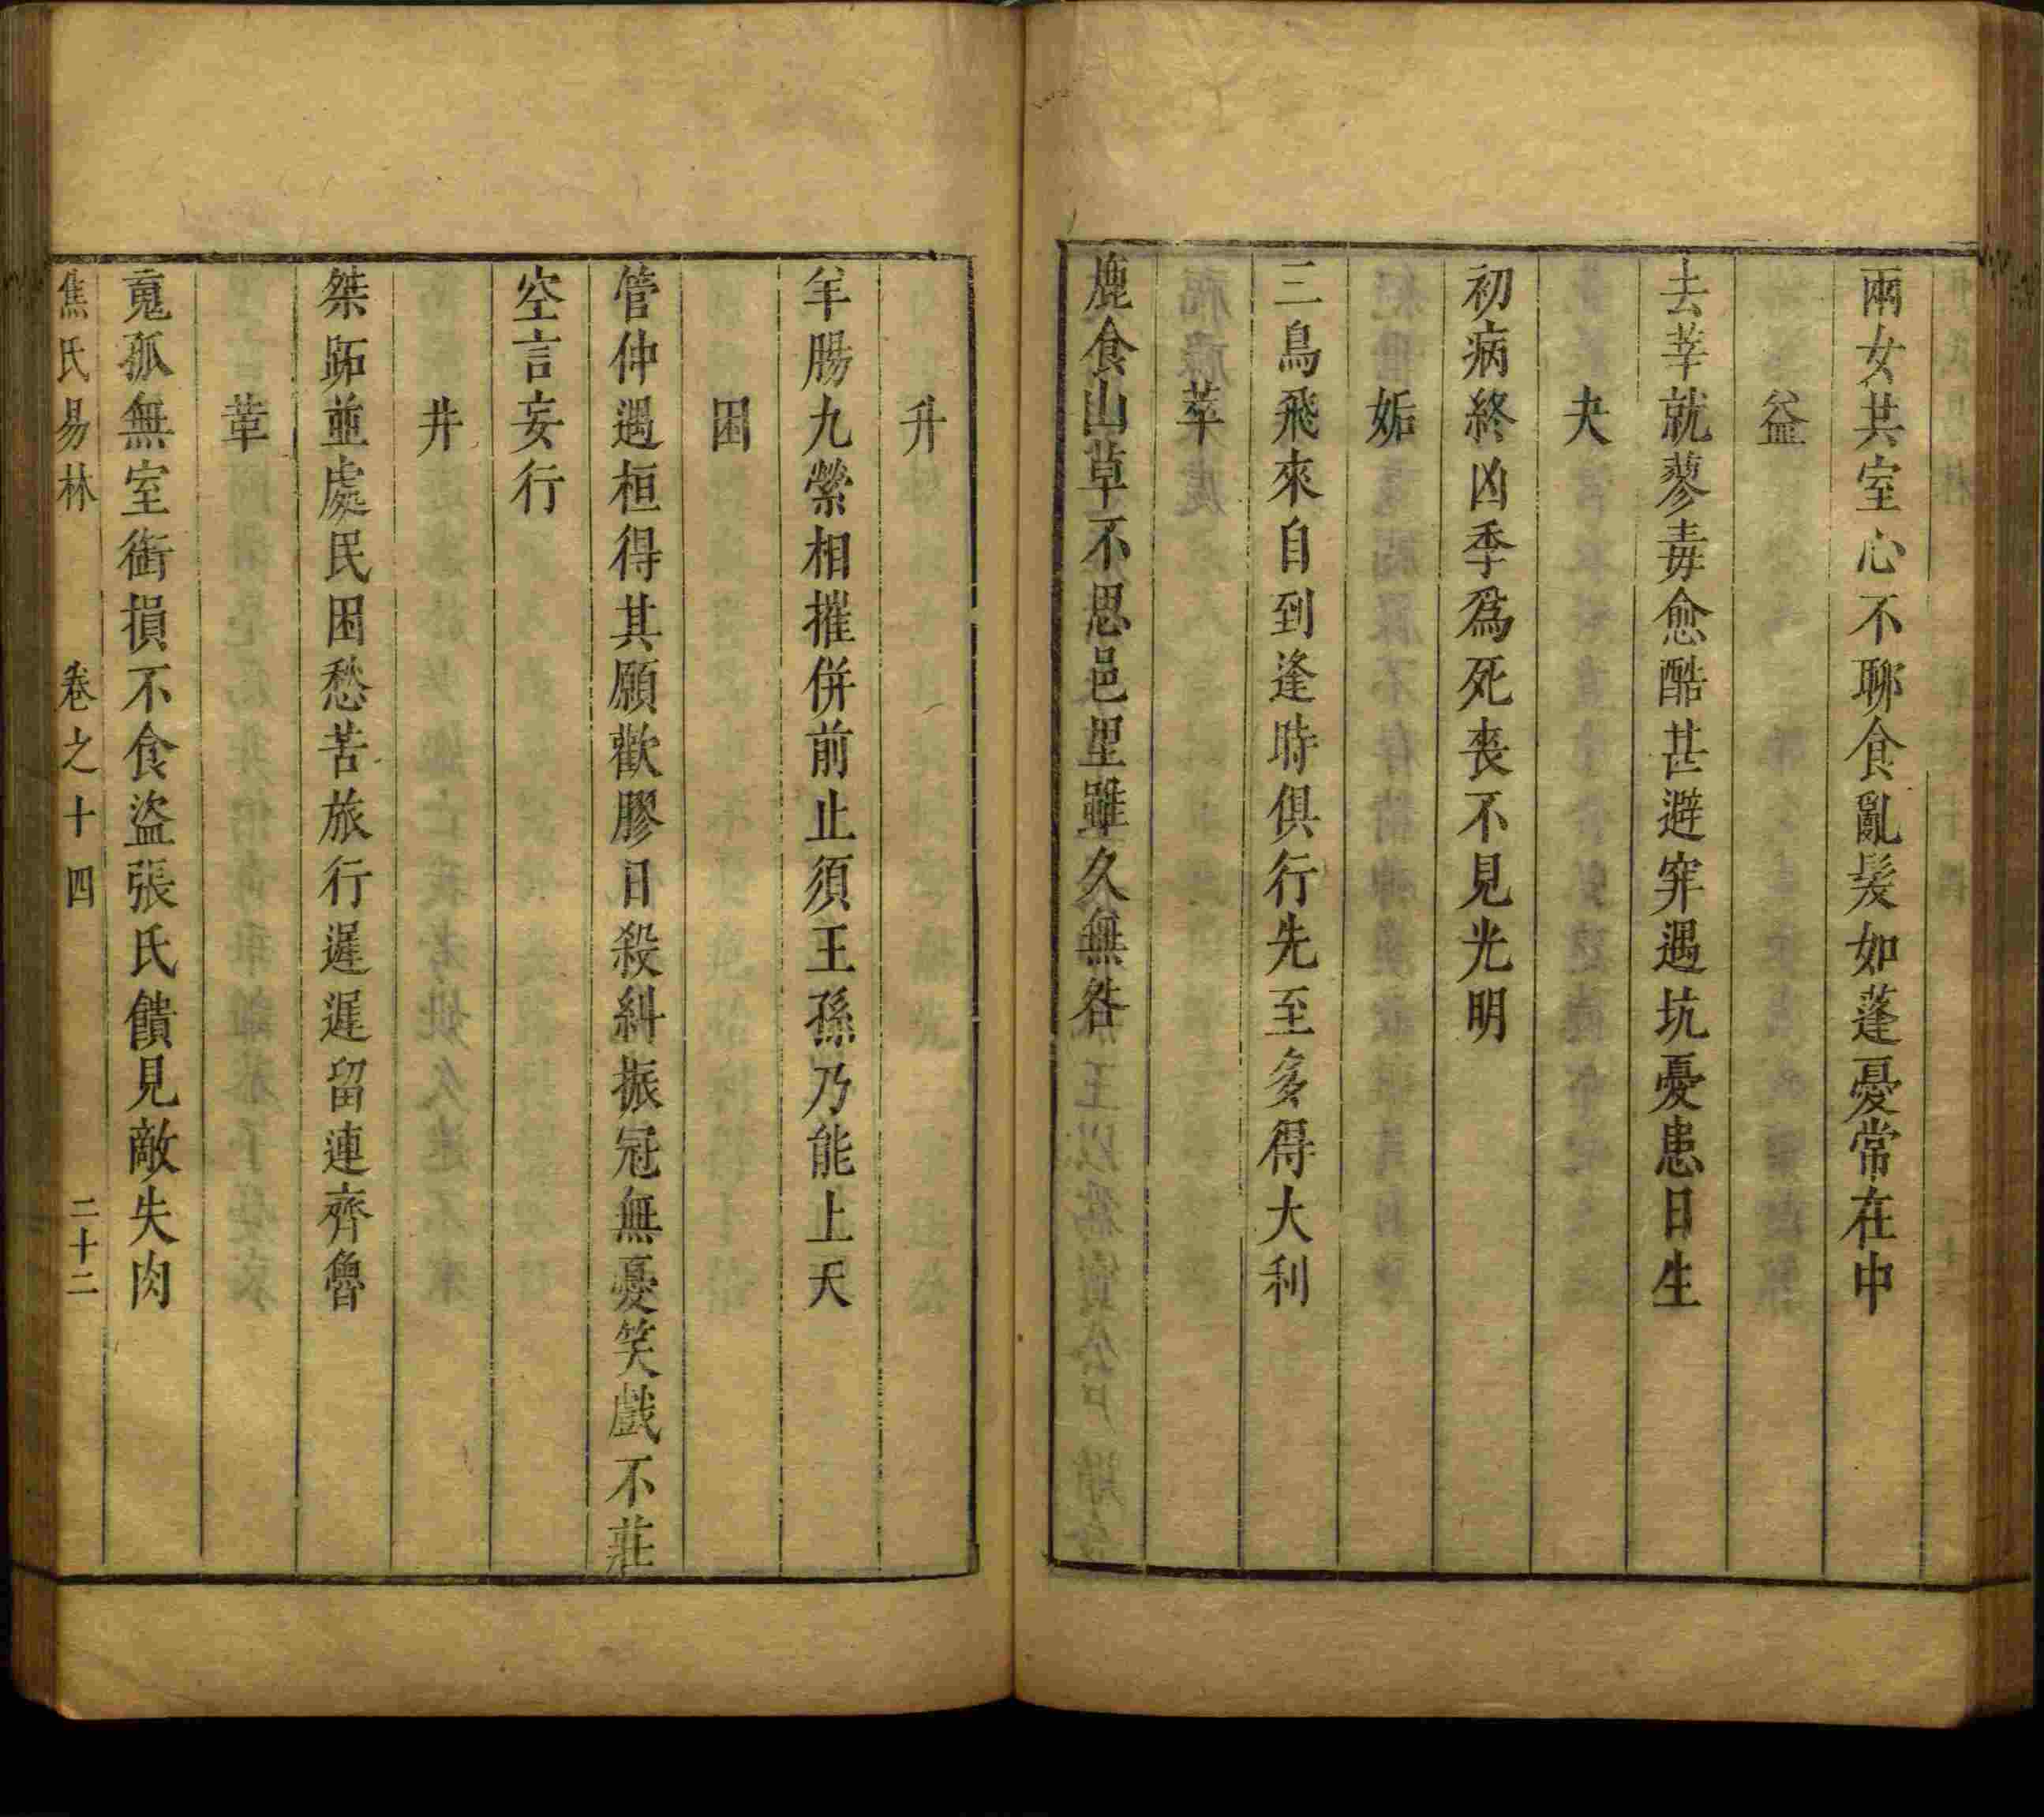 兩女共室心不聊食亂髮如蓬憂常在中
益
去莘就蓼毒愈酷甚避穽遇坑憂患日生
夬
初病終凶季爲死喪不見光明
姤
三鳥飛來自到逢時俱行先至多得大利
萃
鹿食山草不思邑里雖久無咎
升
羊腸九縈相摧併前止須王孫乃能上天
困
管仲遇桓得其願歡膠目殺糾振冠無憂笑戲不莊
空言妄行
井
桀跖並處民困愁苦旅行遲遲留連齊魯
革
䰟孤無室銜損不食盜張氏饋見敵失肉
焦氏易林 卷之十四 二十二